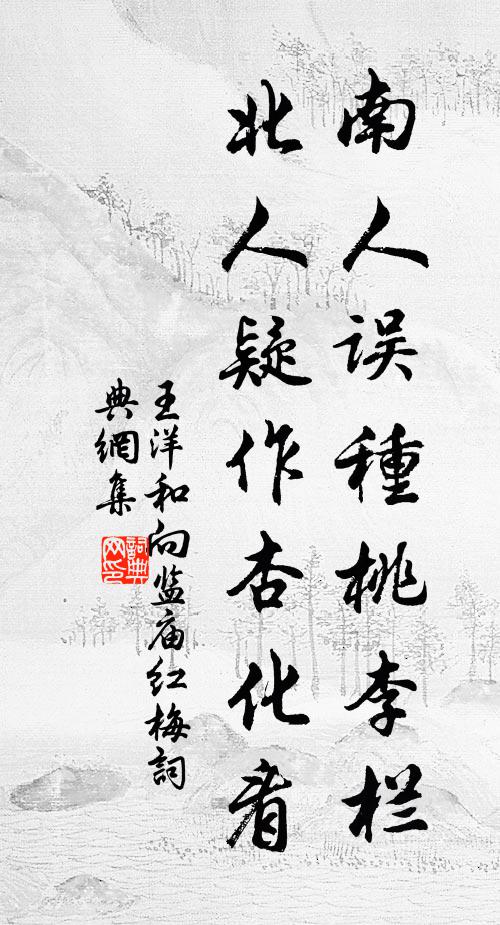 南人误種桃李栏
北人疑作杏化看
王洋和向监庙红梅詞
典網集
詞典
网印